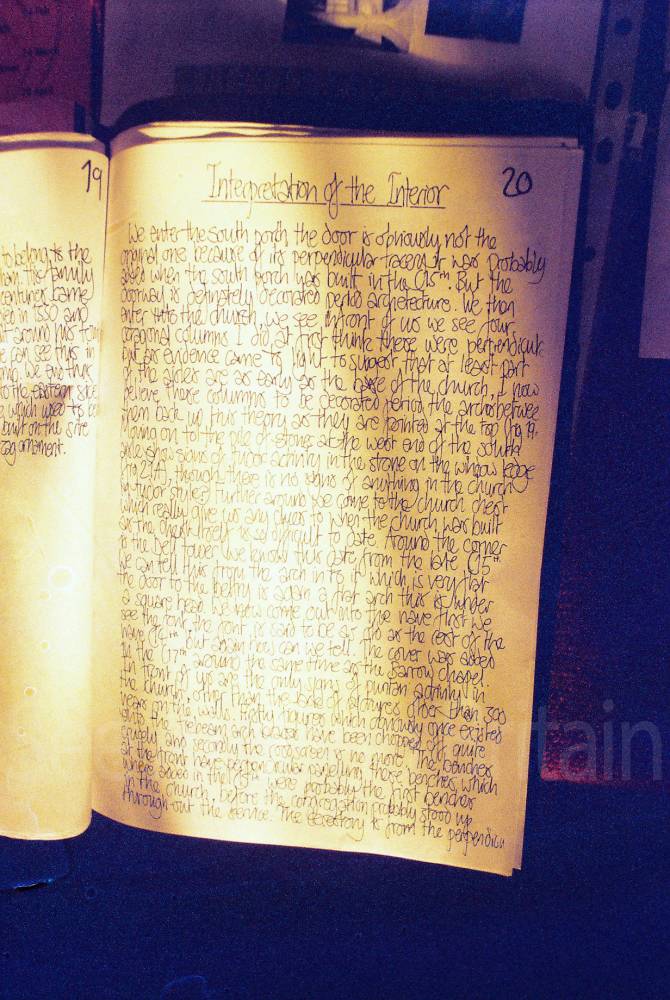 19
to belong to the
family
centuries came
in 1550 and
around this
can see this in
We end this
to the eastern side
which used to be
built on the site
ornament.
Interpretation of the Interior
20
We enter the south porch, the door is obviously not the
original one because of its perpendicular tracery. It was probably
added when the south porch was built in the C15th. But the
doorway is definately decorated period archetecture. We then
enter into the church, we see infront of us we see four
octagonal columns I did at first think these were perpendicular
but as evidence came to light to suggest that at least part
of the aisles are as early as the base of the church, I now
believe those columns to be decorated period. the arches between
them back up this theory as they are pointed at the top (fig 19).
Moving on to the pile of stones at the west end of the south
aisle show signs of tudor activity in the stone on the window ledge
(fig 21A), though there is no signs of anything in the church
in tudor style. Further around we come to the church chest
which really give us any clues to when the church was built
as the chest itself is so difficult to date. Around the corner
is the bell tower we know this date from the late C15th
we can tell this from the arch in to it which is very flat
the door to the belfry is again a flat arch this is under
a square head. We now come out into the nave first we
see the font, the font is said to be as old as the rest of the
nave C14th but again how can we tell. The cover was added
in the C17th around the same time as the Barrow chapel.
In front of us are the only signs of puritan activity in
the church, other than the lack of pictures older than 300
years on the walls. Firstly figures which obviously once existed
onto the have been chopped off quite
crudely and secondly the rood screen is no more. The benches
at the front have perpendicular panelling these benches, which
where added in the were probably the first benches
in the church, before the congregation probably stood up
through out the service. The is from the perpendicu
tain